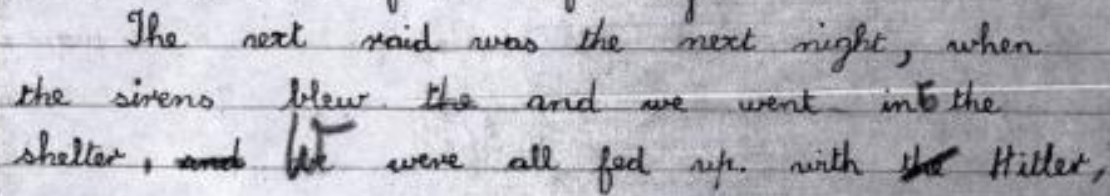 The next raid was the next night, when
the sirens blew. the and we went into the
shelter, and We were all fed up. with the Hitler,